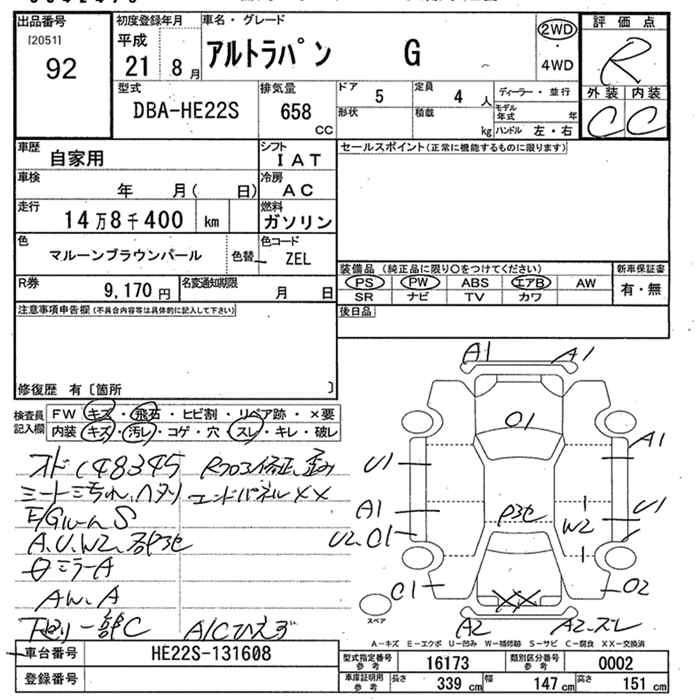 出品番号
[2051]
92
初度登録年月
平成
21 8月
車名・グレード
アルトラパン G
2WD
・
4WD
評価点
R
外装 内装
C C
型式
DBA-HE22S
排気量
658
CC
ドア
5
定員
4 人
ディーラー・並行
形状
積載
kg
モデル年式 年
ハンドル 左・右
車歴
自家用
シフト
IAT
車検
年 月( 日)
冷房
AC
走行
14万8千400 km
燃料
ガソリン
色
マルーンブラウンパール
色替
色コード
ZEL
R券
9,170円
名変通知期限
月 日
セールスポイント(正常に機能するものに限ります)
装備品(純正品に限り○をつけてください)
新車保証書
PS PW ABS エアB AW
有・無
SR ナビ TV カワ
後日品
注意事項申告欄(不具合内容等は具体的に記入して下さい)
修復歴 有〔箇所 〕
検査員
記入欄
FW キズ・飛石・ヒビ割・リペア跡・×要
内装 キズ・汚レ・コゲ・穴・スレ・キレ・破レ
148345
シート
S
A.U.W2
ミラーA
AW.A
一部C
A1 A1
01
U1 A1
A1 U1
U2 01 W2
C1 02
XX
A2 A2 スレ
スペア
A-キズ E-エクボ U-凹み W-補修跡 S-サビ C-腐食 XX-交換済
車台番号
HE22S-131608
登録番号
型式指定番号
参考
16173
類別区分番号
参考
0002
車庫証明用
参考
長さ
339 cm
幅
147 cm
高さ
151 cm